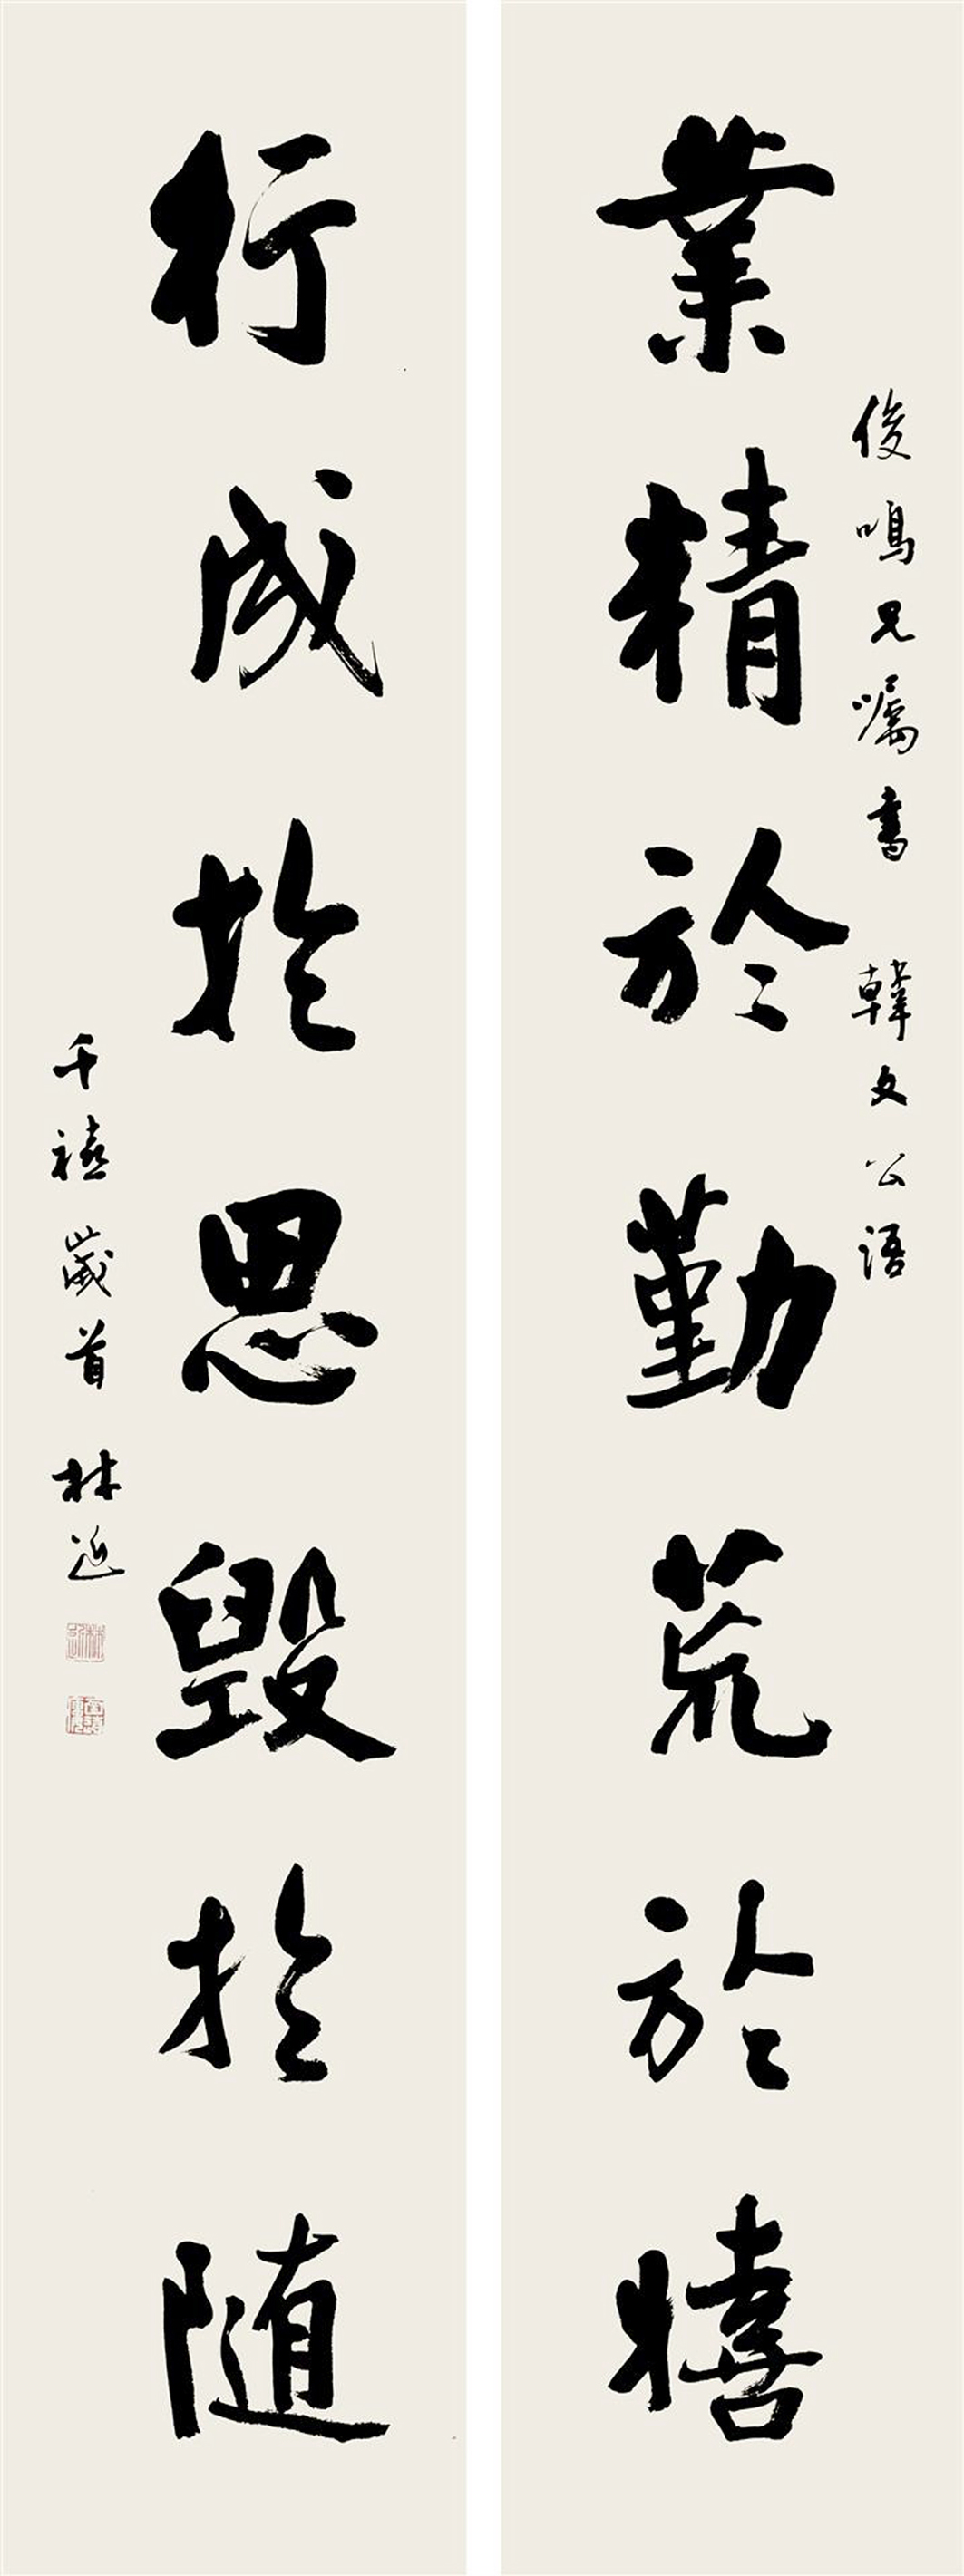 俊鳴兄嘱書 韓文公語
業精於勤荒於嬉
行成於思毁於随
千禧歲首 林近